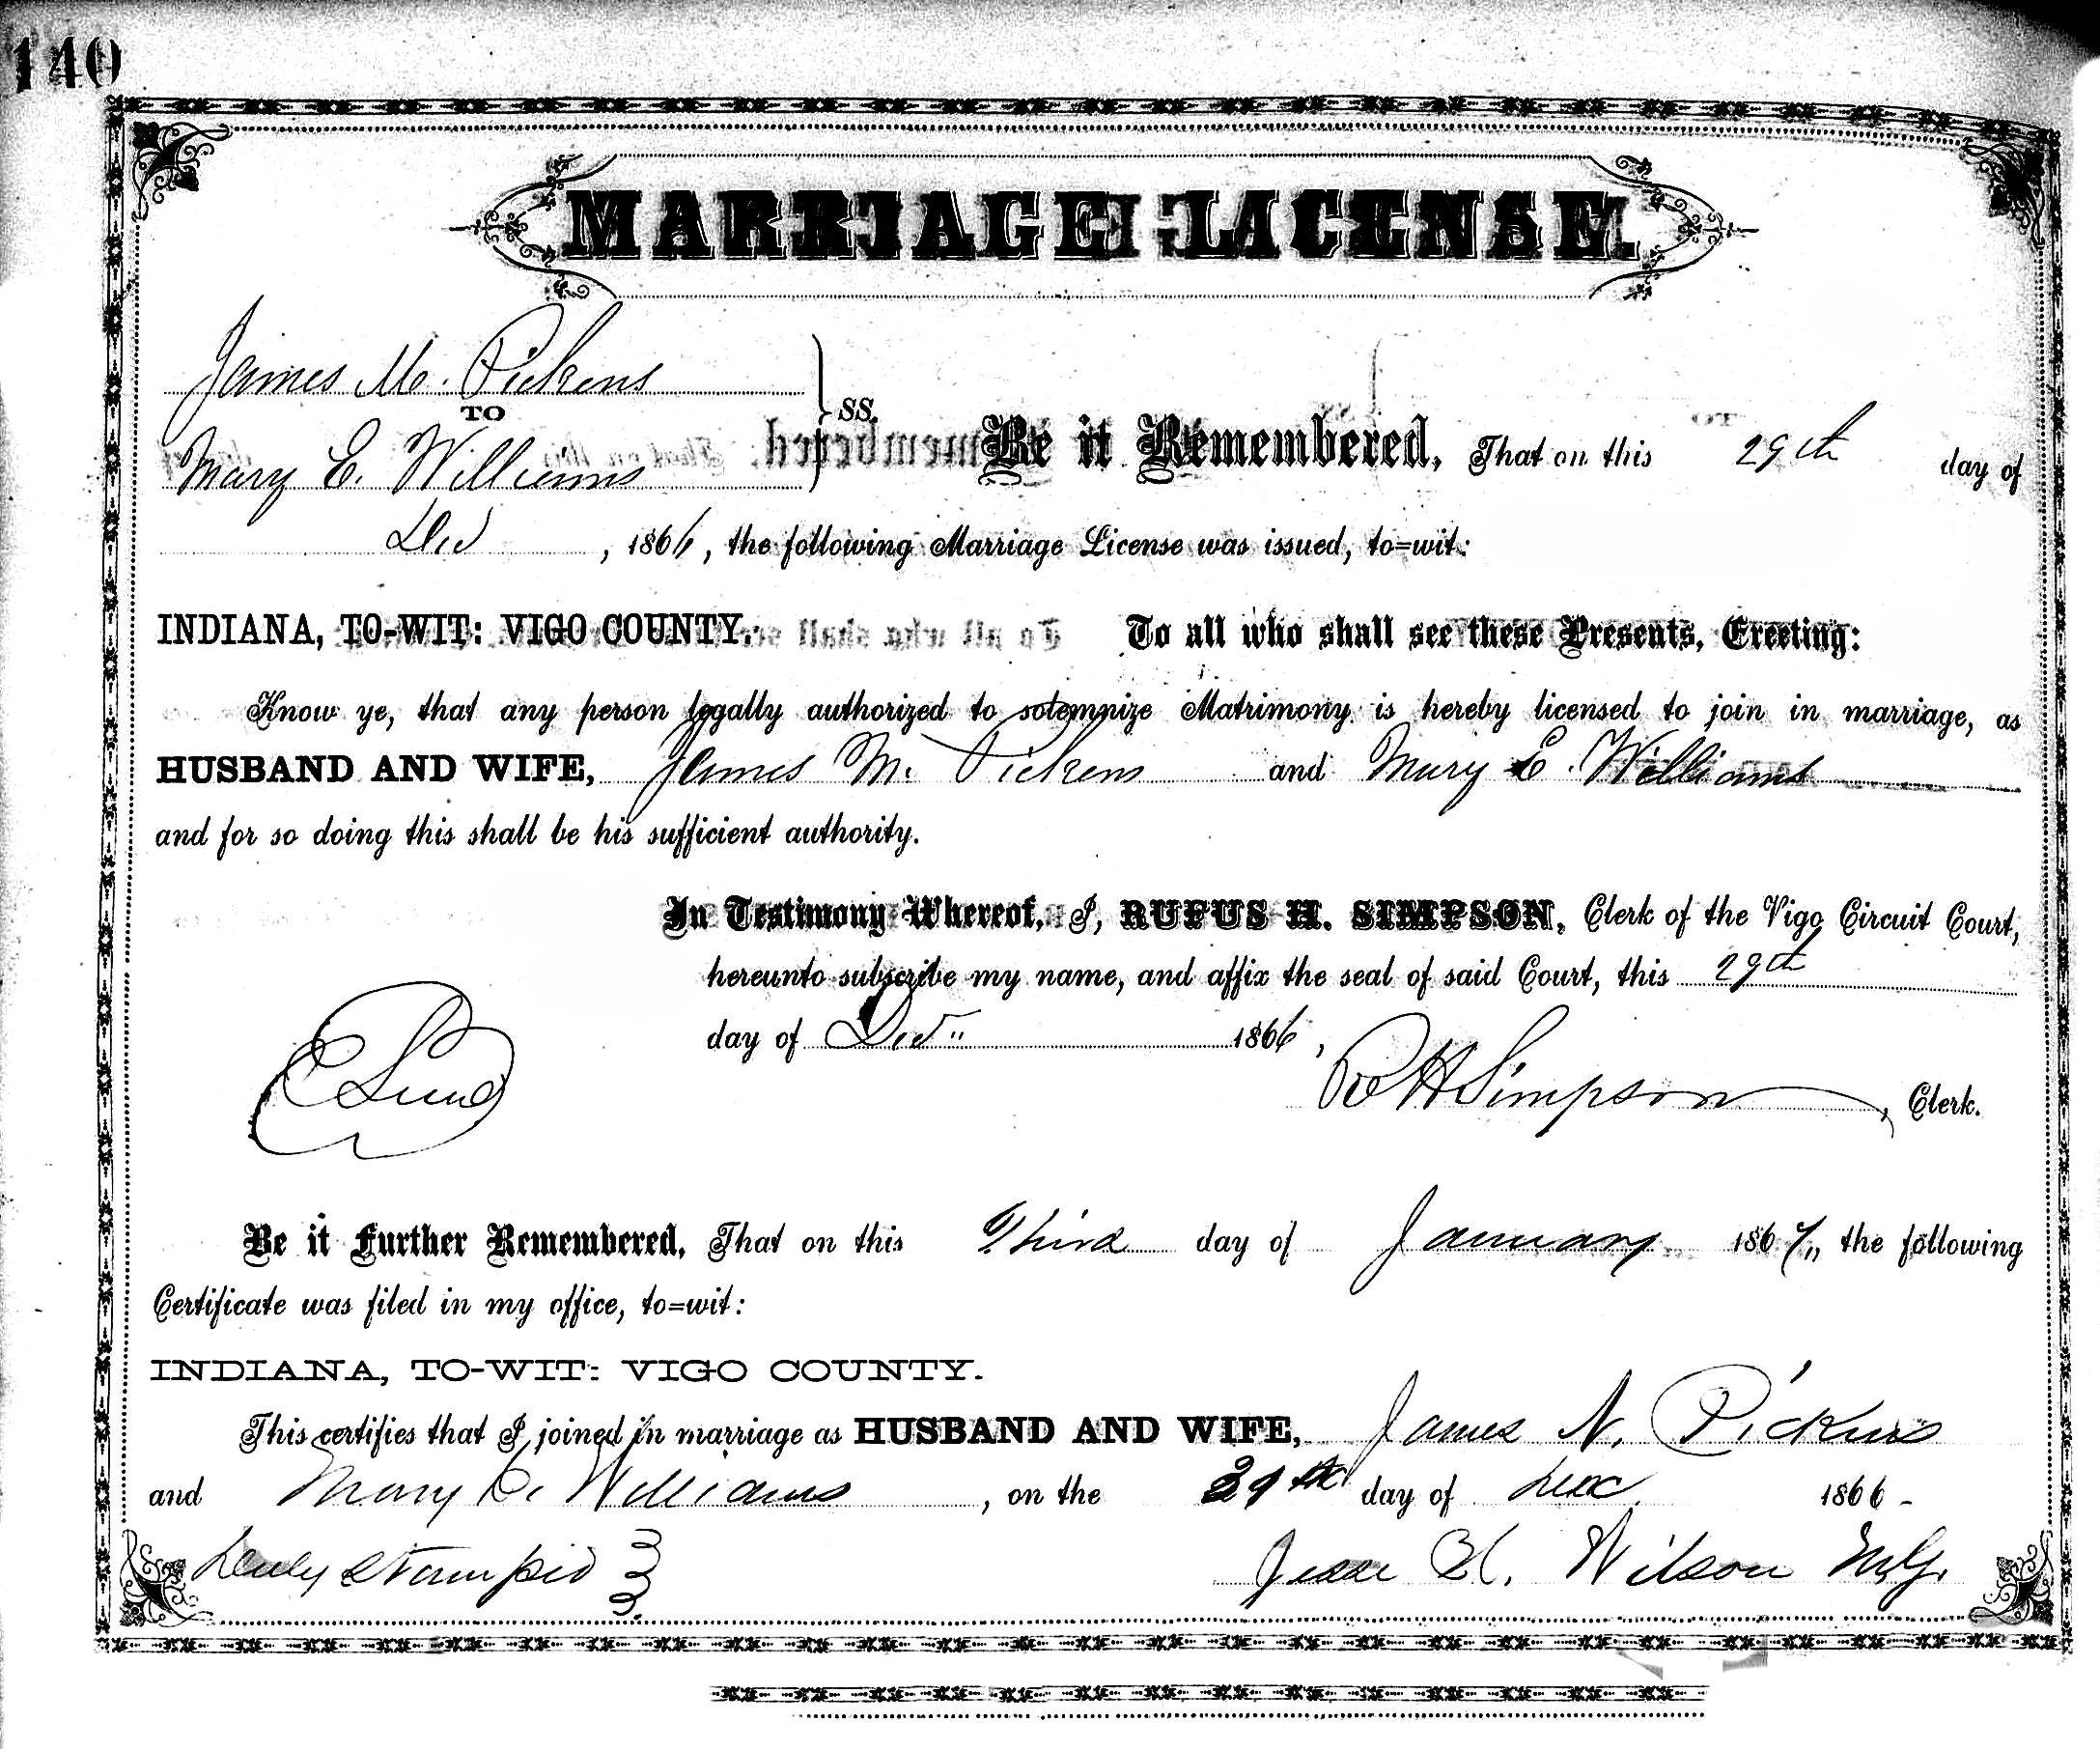 140
MARRIAGE LICENSE.
James M. Pickens
TO
Mary E. Williams
SS.
Be it Remembered, That on this 29th day of
Dec , 1866, the following Marriage License was issued, to=wit:
INDIANA, TO-WIT: VIGO COUNTY. To all who shall see these Presents, Greeting:
Know ye, that any person legally authorized to solemnize Matrimony is hereby licensed to join in marriage, as
HUSBAND AND WIFE, James M. Pickens and Mary E. Williams
and for so doing this shall be his sufficient authority.
In Testimony Whereof, I, RUFUS H. SIMPSON, Clerk of the Vigo Circuit Court,
hereunto subscribe my name, and affix the seal of said Court, this 29th
day of Dec" 1866,
R H Simpson, Clerk.
Be it Further Remembered, That on this Third day of January 1867,, the following
Certificate was filed in my office, to=wit:
INDIANA, TO-WIT: VIGO COUNTY.
This certifies that I joined in marriage as HUSBAND AND WIFE, James N. Pickens
and Mary E. Williams , on the 29th day of Dec 1866-
Duly stamped
Jesse H. Wilson M.G.